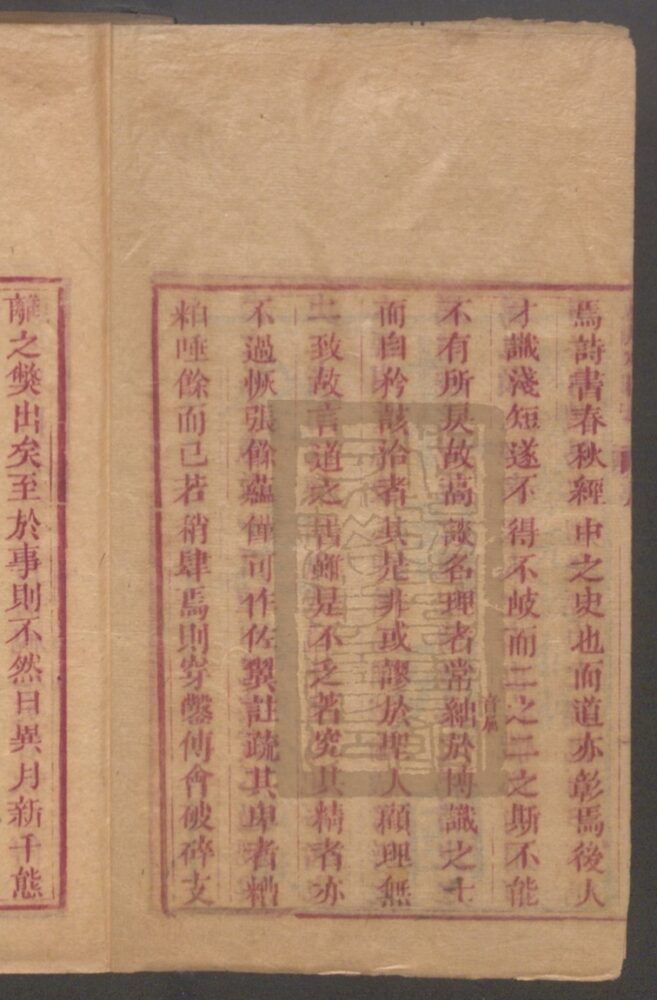 焉詩書春秋經中之史也而道亦彰焉後人
才識淺短遂不得不岐而二之二之斯不能
不有所戾故高談名理者常絀於博識之士
音屈
而自矜該洽者其是非或謬於聖人顧理無
二致故言道之書雖是不乏若究其精者亦
不過恢張餘蘊僅可作佐翼註疏其卑者糟
粕唾餘而已若稍肆焉則穿鑿傅會破碎支
離之獘出矣至於事則不然日異月新千態